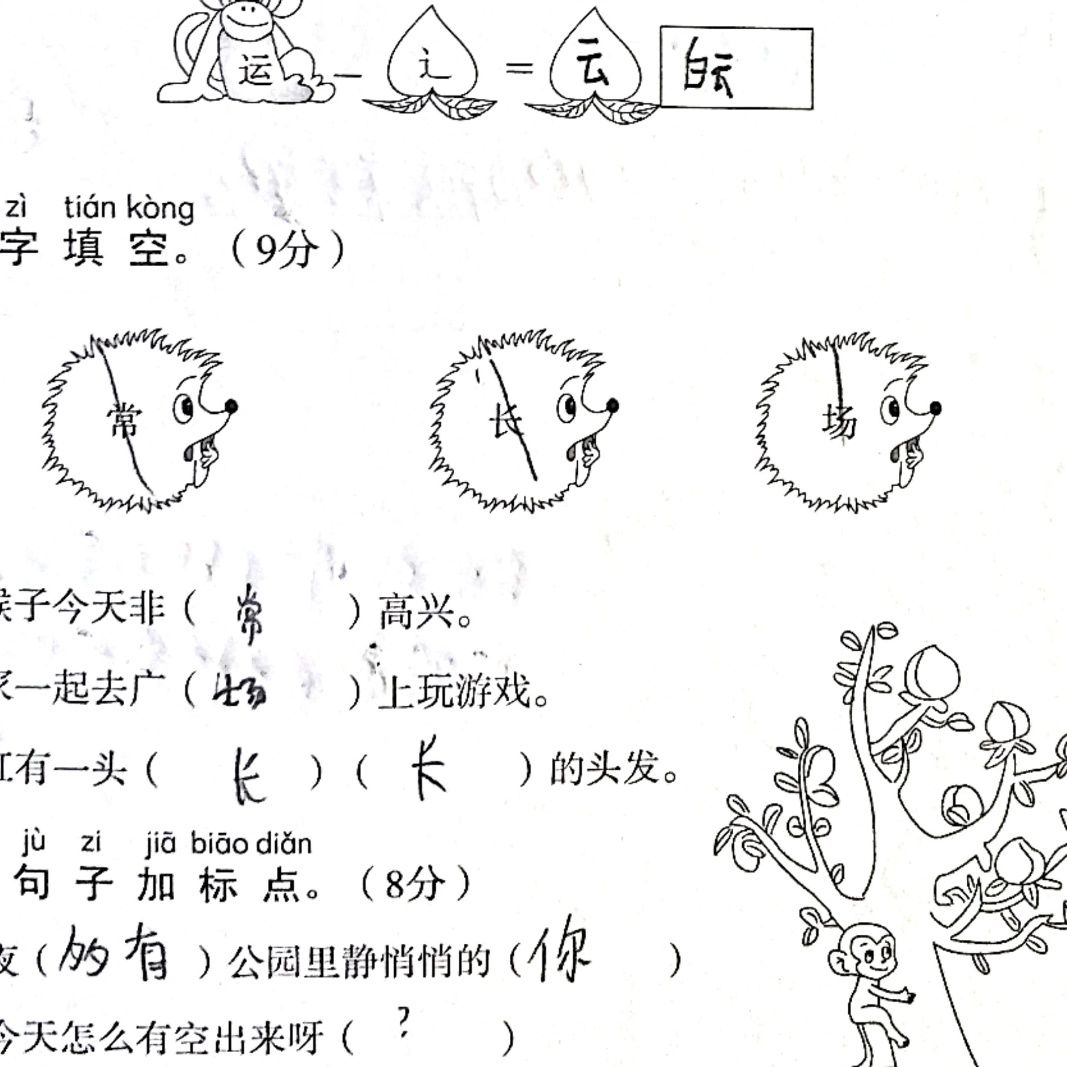 运 - 辶 = 云 白云
zì tián kòng
字填空。（9分）
常 长 场
猴子今天非（常）高兴。
家一起去广（场）上玩游戏。
红有一头（长）（长）的头发。
jù zi jiā biāo diǎn
句子加标点。（8分）
夜（的有）公园里静悄悄的（你）
今天怎么有空出来呀（?）